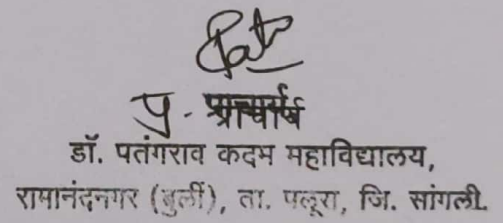 प्र. प्राचार्य
डॉ. पतंगराव कदम महाविद्यालय,
रामानंदनगर (बुर्ली), ता. पलूस, जि. सांगली.